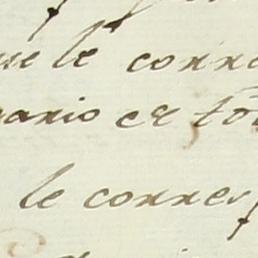 que le corre
nario en to
le corres